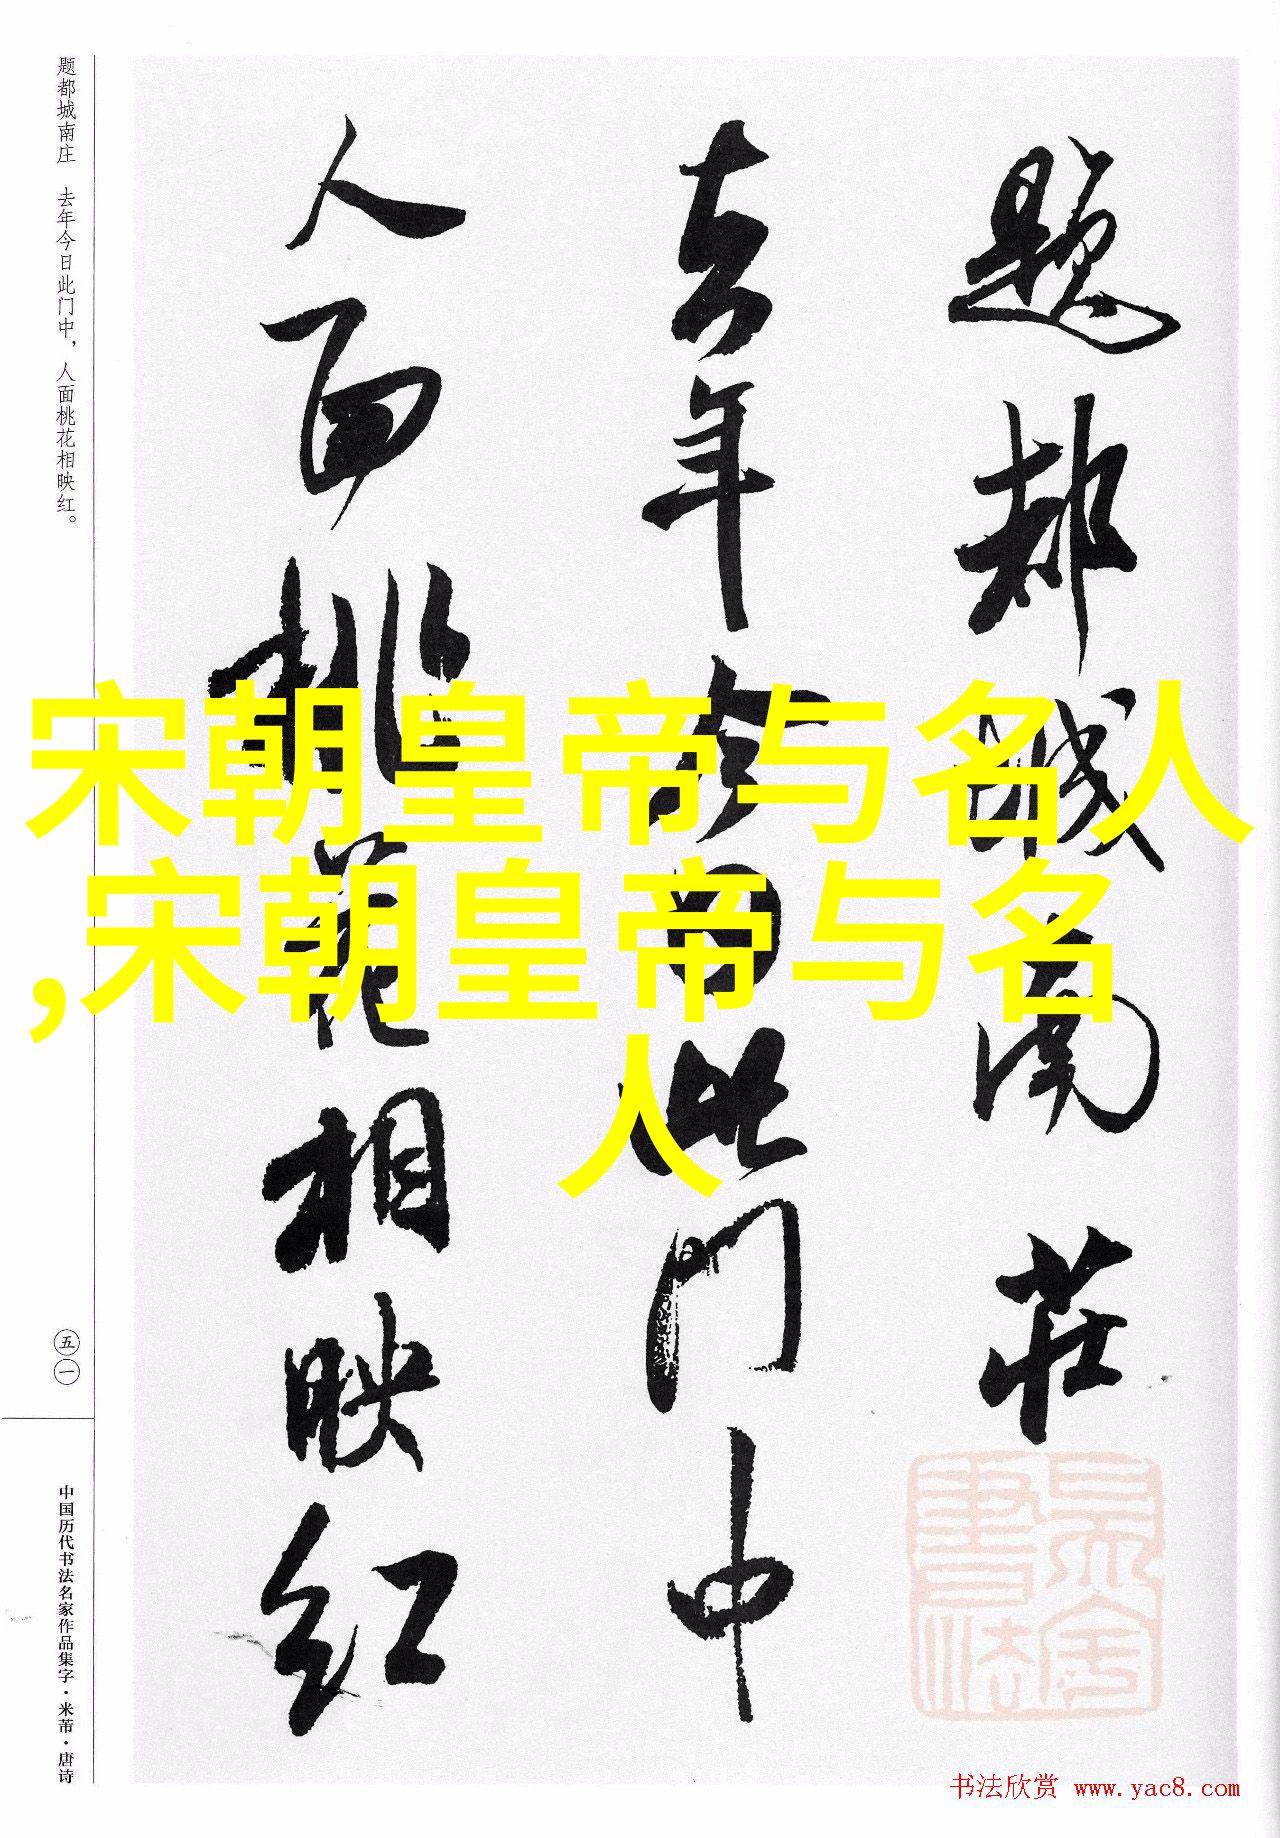 题都城南庄 去年今日此门中，人面桃花相映红。
題都城南莊
去年今日此门中
人面桃花相映红
宋朝皇帝与名人
,宋朝皇帝与名
人
五一
中国历代书法名家作品集字·米芾·唐诗
书法欣赏 www.yac8.com